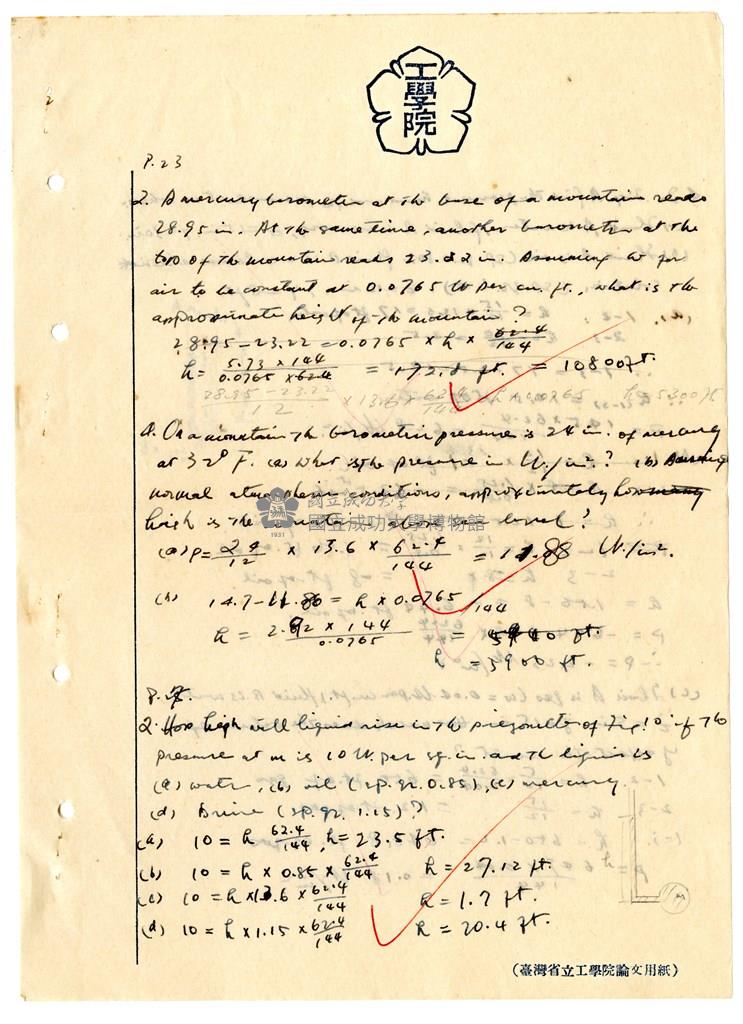 工學院
P. 23
2. A mercury barometer at the base of a mountain reads
28.95 in. At the same time, another barometer at the
top of the mountain reads 23.22 in. Assuming w for
air to be constant at 0.0765 lb per cu. ft., what is the
approximate height of the mountain?
28.95 - 23.22 = 0.0765 × h × 62.4/144
h = 5.73 × 144 / 0.0765 × 62.4 = 172.8 ft. = 10800 ft.
28.95 - 23.22 / 12 × 13.6 × 62.4/144 = h × 0.0765 h = 5300 ft
4. On a mountain the barometric pressure is 24 in. of mercury
at 32° F. (a) What is the pressure in lb./in². ? (b) Assuming
normal atmospheric conditions, approximately how many
high is the above sea level?
國立成功大學
國立成功大學博物館
1931
(a) p = 24/12 × 13.6 × 62.4/144 = 11.88 lb./in².
(b) 14.7 - 11.80 = h × 0.0765/144
h = 2.82 × 144 / 0.0765 =
h = 5900 ft.
2. How high will liquid rise in the piezometer of Fig. 10 if the
pressure at m is 10 lb. per sq. in. and the liquid is
(a) water, (b) oil (sp. gr. 0.85), (c) mercury.
(d) Brine (sp. gr. 1.15)?
(a) 10 = h 62.4/144, h = 23.5 ft.
(b) 10 = h × 0.85 × 62.4/144 h = 27.12 ft.
(c) 10 = h × 13.6 × 62.4/144 h = 1.7 ft.
(d) 10 = h × 1.15 × 62.4/144 h = 20.4 ft.
h
(臺灣省立工學院論文用紙)